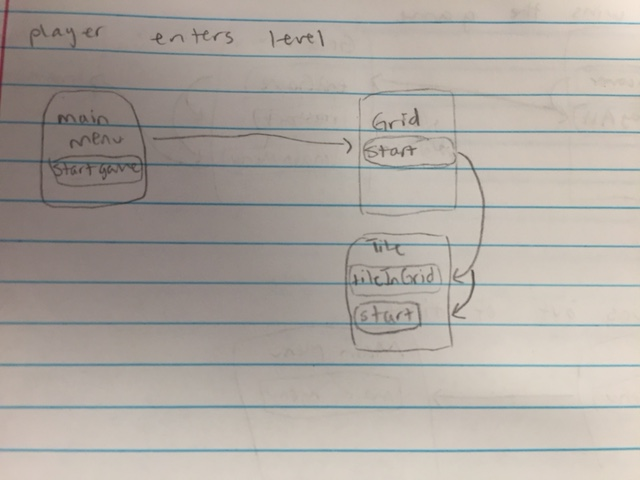 player enters level
main
menu
startgame
Grid
start
Tile
tileInGrid
start